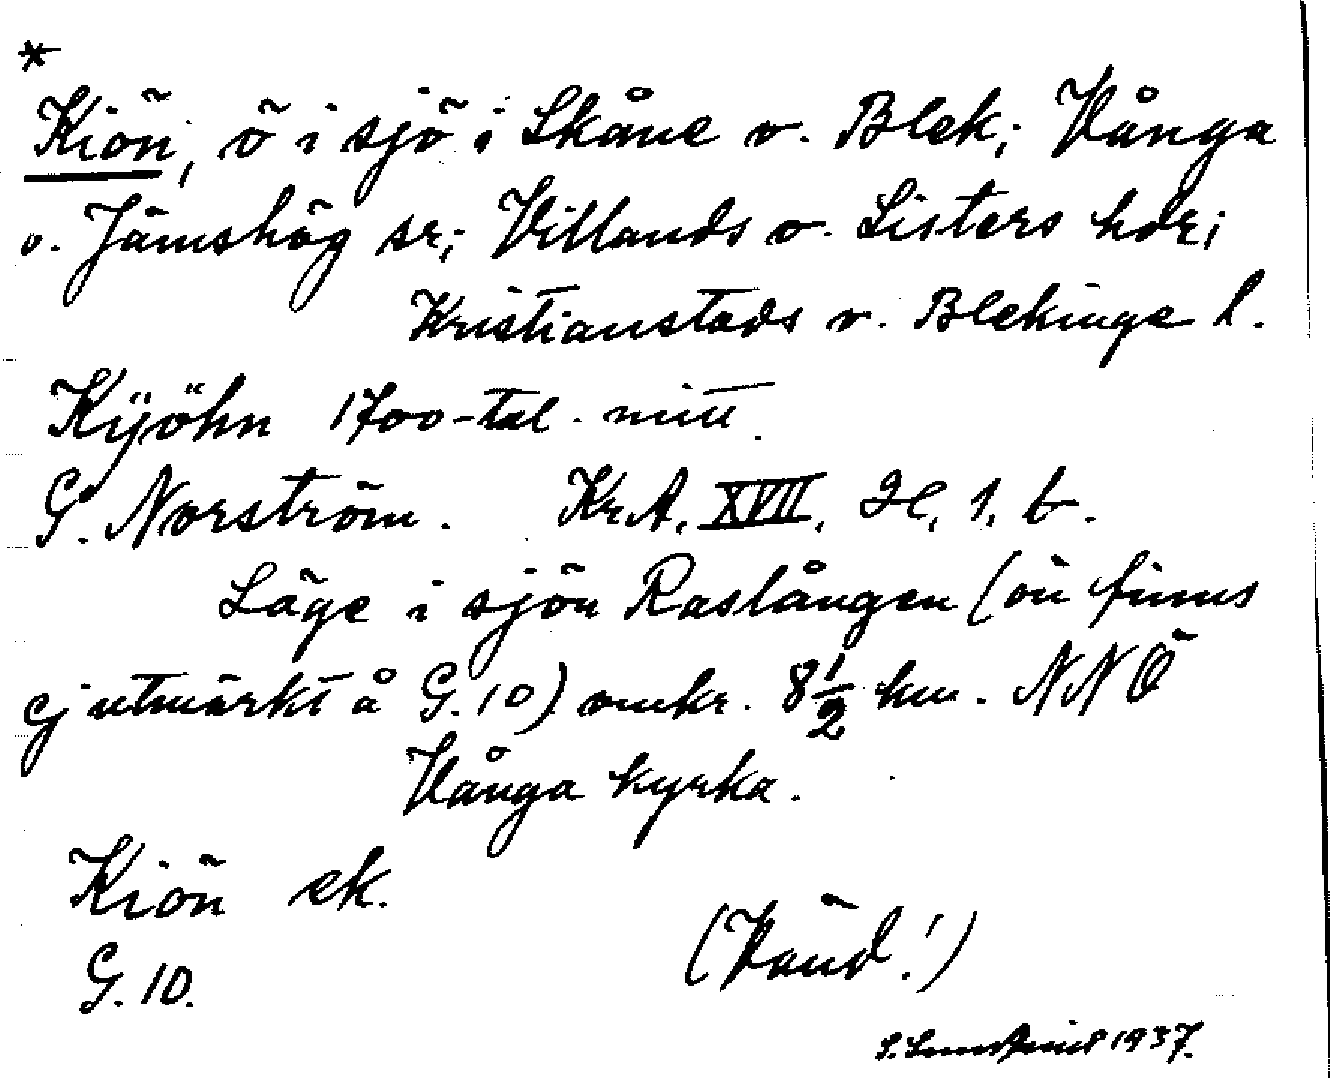 *
Kiön, ö i sjö i Skåne o. Blek; Vånga
o. Jämshög sr; Villands o. Listers hdr;
Kristianstads o. Blekinge l.
Kÿöhn 1700-tal. mitt.
G. Norström. Kr.A. XVII, 2e, 1, b.
Läge i sjön Raslången (ön finns
ej utmärkt å G.10) omkr. 8 1/2 km. NNÖ
Vånga kyrka.
Kiön ek.
G. 10.
(Vänd!)
1937.